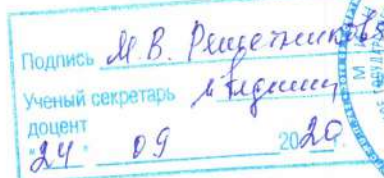 Подпись М. В. Решетникова
Ученый секретарь
доцент
"24" 09 2020.